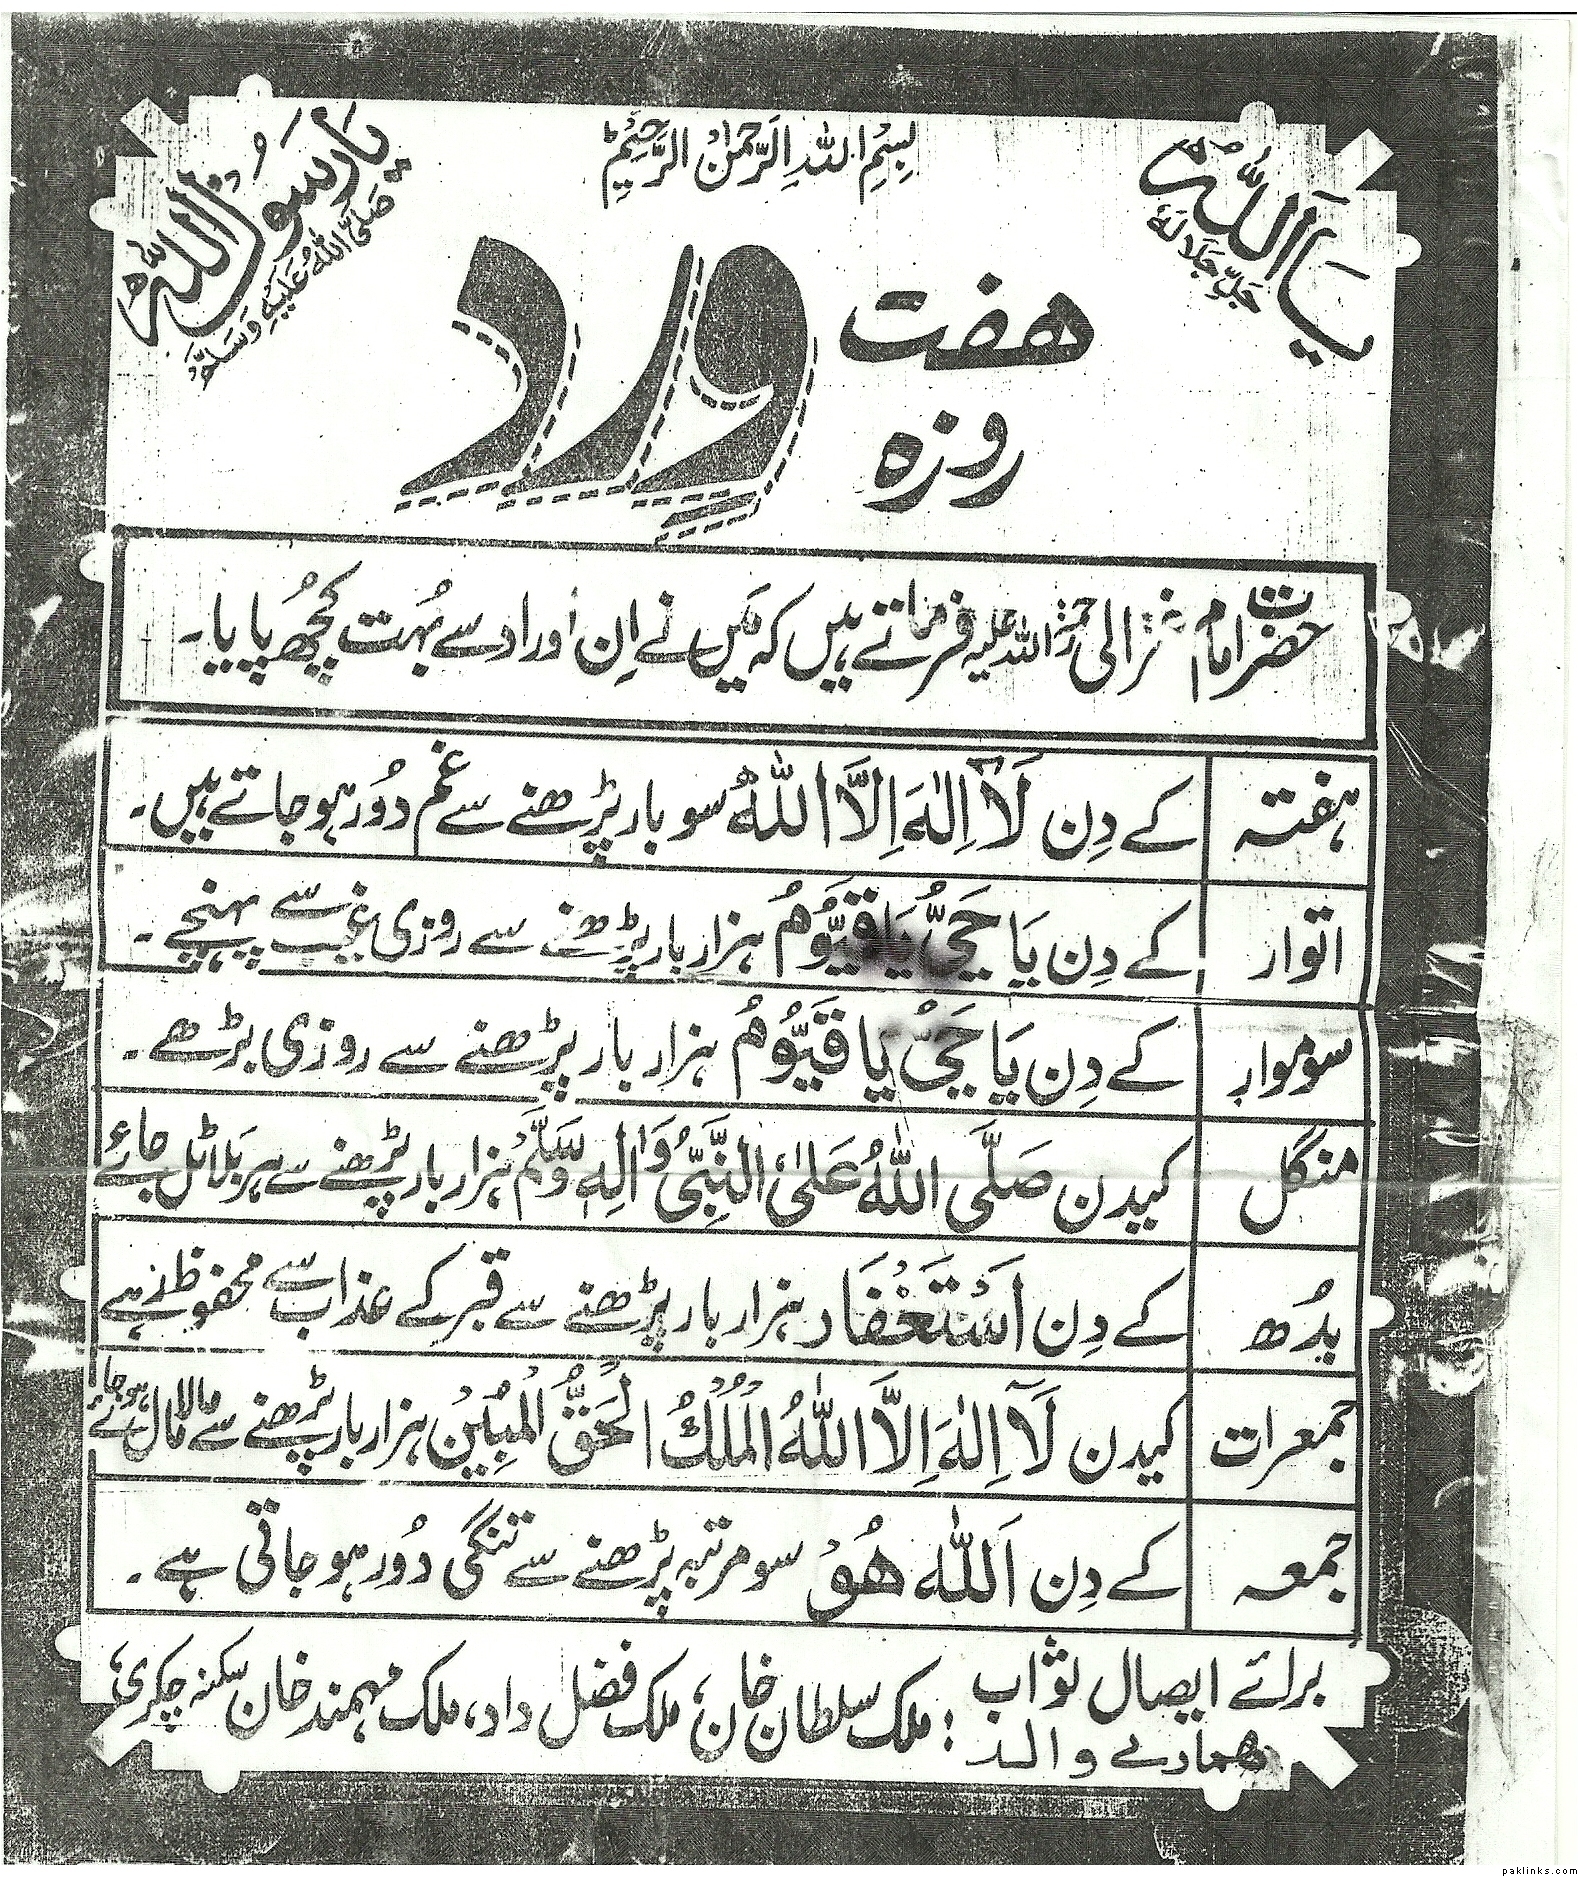 یَا اَللّٰہُ
جَلَّ جَلَالَہٗ
بِسْمِ اللّٰہِ الرَّحْمٰنِ الرَّحِیْمِ
یَا رَسُوْلَ اللّٰہ
صَلَّی اللّٰہُ عَلَیْہِ وَسَلَّمَ
ہفت روزہ وِرد
حضرت امام غزالی رحمۃ اللہ علیہ فرماتے ہیں کہ مَیں نے اِن اوراد سے بُہت کُچھ پایا۔
ہفتہ کے دِن لَآ اِلٰہَ اِلَّا اللّٰہُ سو بار پڑھنے سے غم دُور ہو جاتے ہیں۔
اتوار کے دِن یَا حَیُّ یَا قَیُّوْمُ ہزار بار پڑھنے سے روزی غیب سے پہنچے۔
سوموار کے دِن یَا حَیُّ یَا قَیُّوْمُ ہزار بار پڑھنے سے روزی بڑھے۔
منگل کیدن صَلَّی اللّٰہُ عَلَی النَّبِیِّ وَاٰلِہٖ وَسَلَّمْ ہزار بار پڑھنے سے ہر بَلا ٹل جائے
بدُھ کے دِن اَسْتَغْفَار ہزار بار پڑھنے سے قبر کے عذاب سے محفوظ رہے
جمعرات کیدن لَآ اِلٰہَ اِلَّا اللّٰہُ الْمُلْکُ الْحَقُّ الْمُبِیْن ہزار بار پڑھنے سے مالا مال ہو جائے
جمعہ کے دِن اَللّٰہ ھُوْ سو مرتبہ پڑھنے سے تنگی دُور ہو جاتی ہے۔
برائے ایصال ثواب ہمارے والد : ملک سلطان خان، ملک فضل داد، ملک مہمند خان سکنہ چکری،
paklinks.com